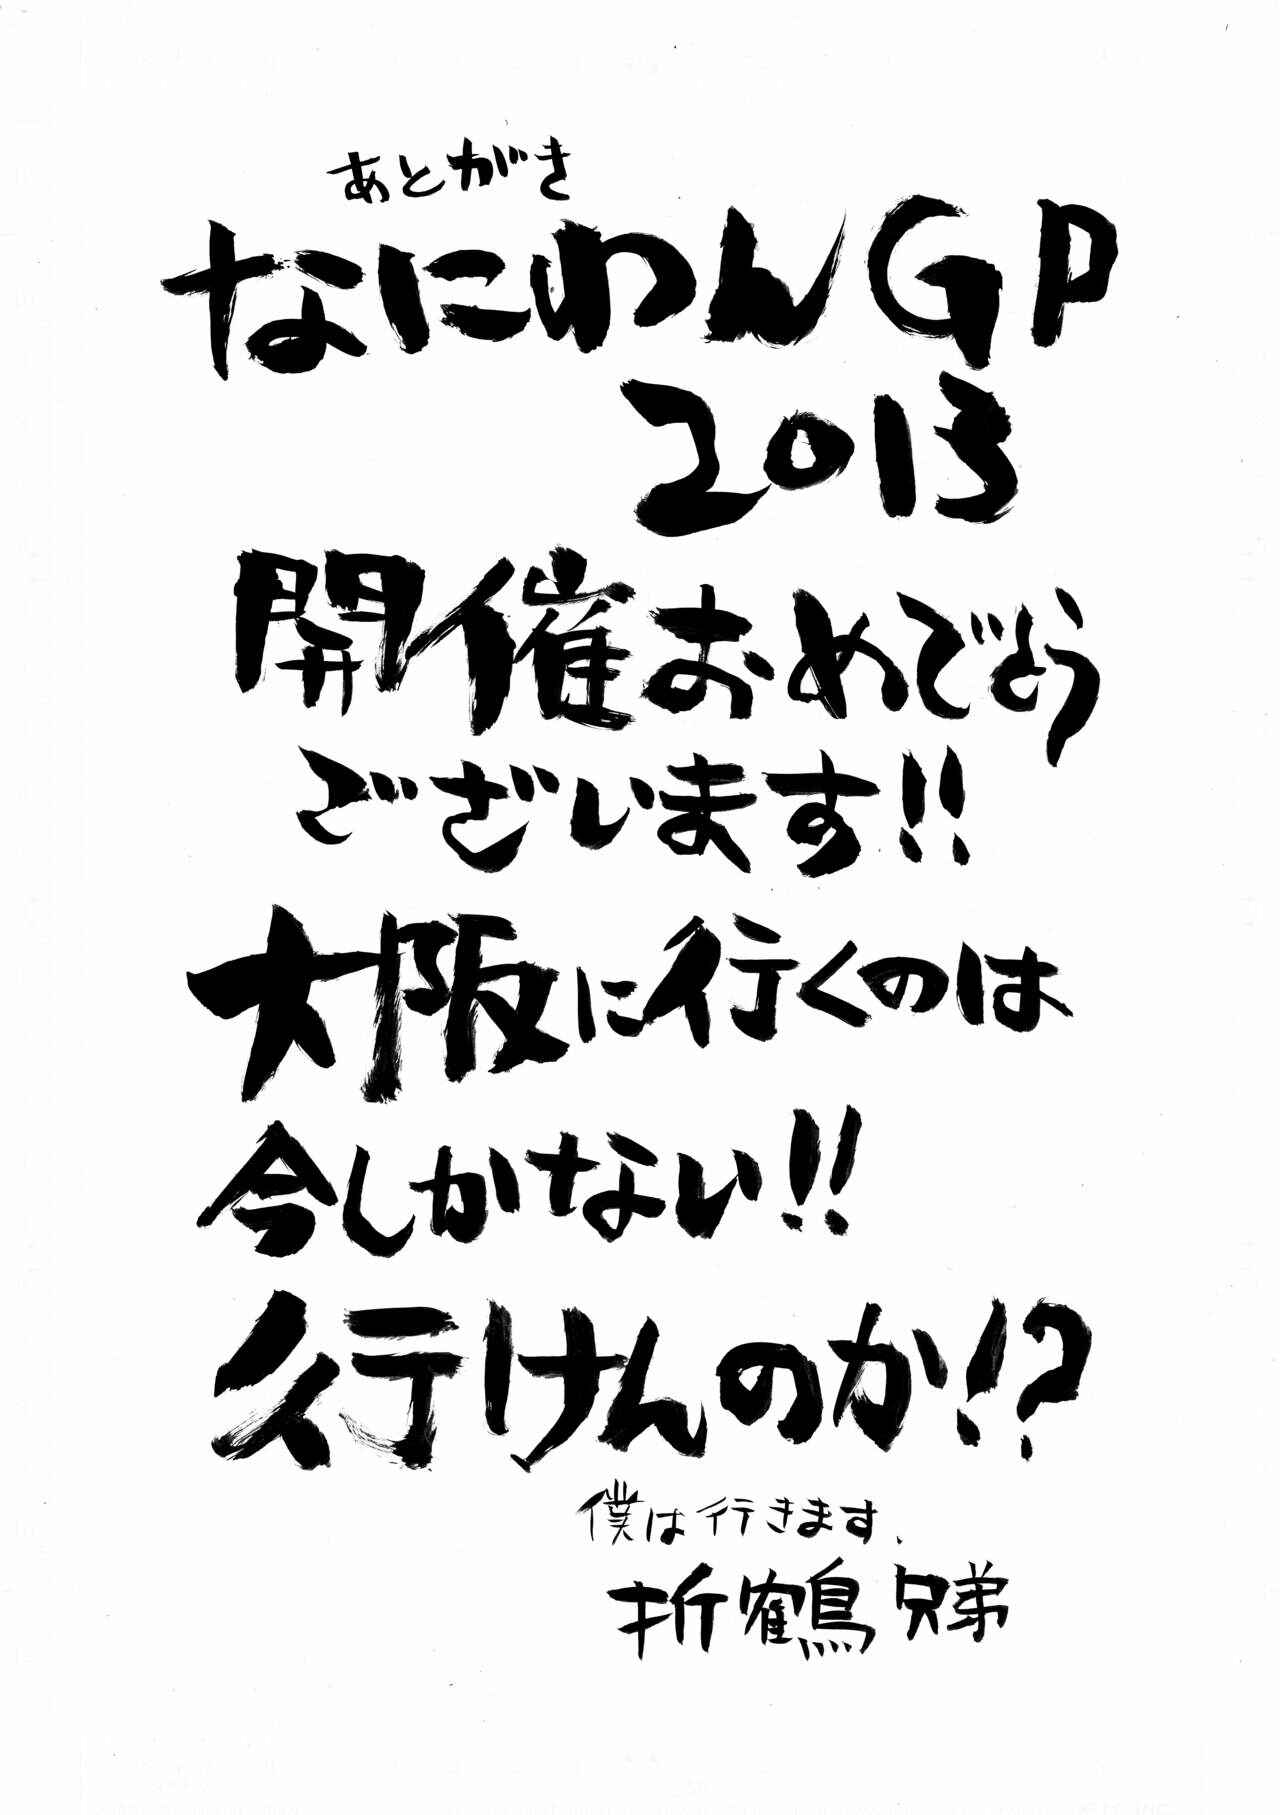 あとがき
なにわんGP
2013
開催おめでとう
ございます!!
大阪に行くのは
今しかない!!
行けんのか!?
僕は行きます、
折鶴兄弟